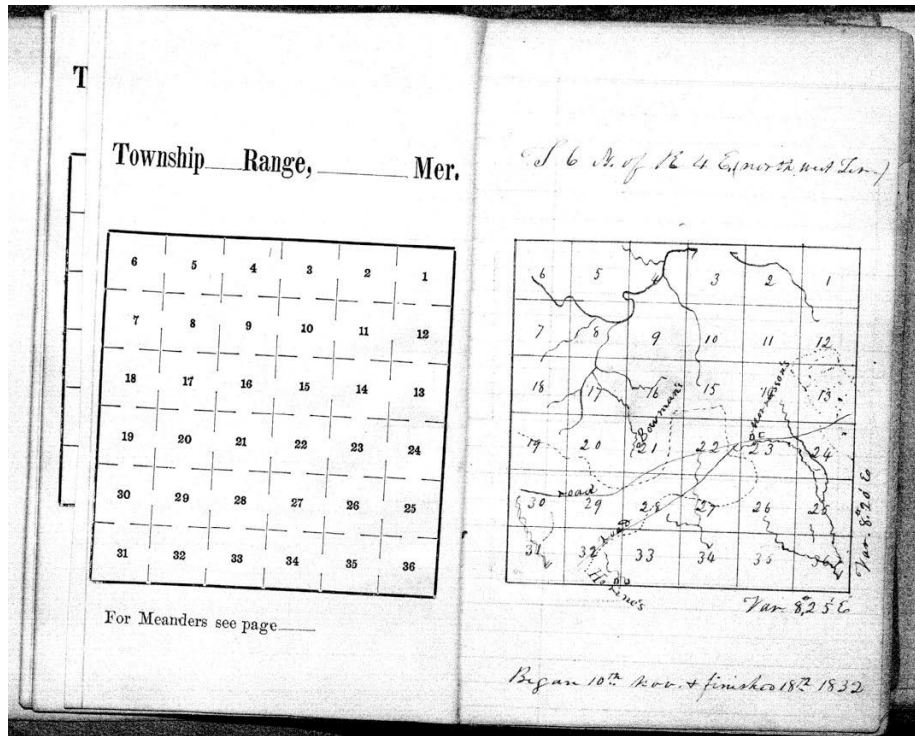 T
Township Range, Mer.
6 5 4 3 2 1
7 8 9 10 11 12
18 17 16 15 14 13
19 20 21 22 23 24
30 29 28 27 26 25
31 32 33 34 35 36
For Meanders see page
T 6 N. of R 4 E. (north west Line)
6 5 4 3 2 1
7 8 9 10 11 12
18 17 16 15 14 13
Bowman's
19 20 21 22 23 24
road
30 29 28 27 26 25
road
31 32 33 34 35 36
Var. 8°,20' E
Var 8°,25' E
Began 10th Nov. & finished 18th 1832